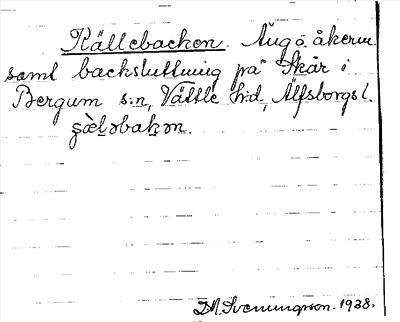 Källebacken. Äng o. åkerm.
samt backsluttning på Skår i
Bergum s:n, Vättle h:d, Älfsborgs l.
ʂæ̀l̠əbak̠ən.
D.M. Svenningson. 1938.